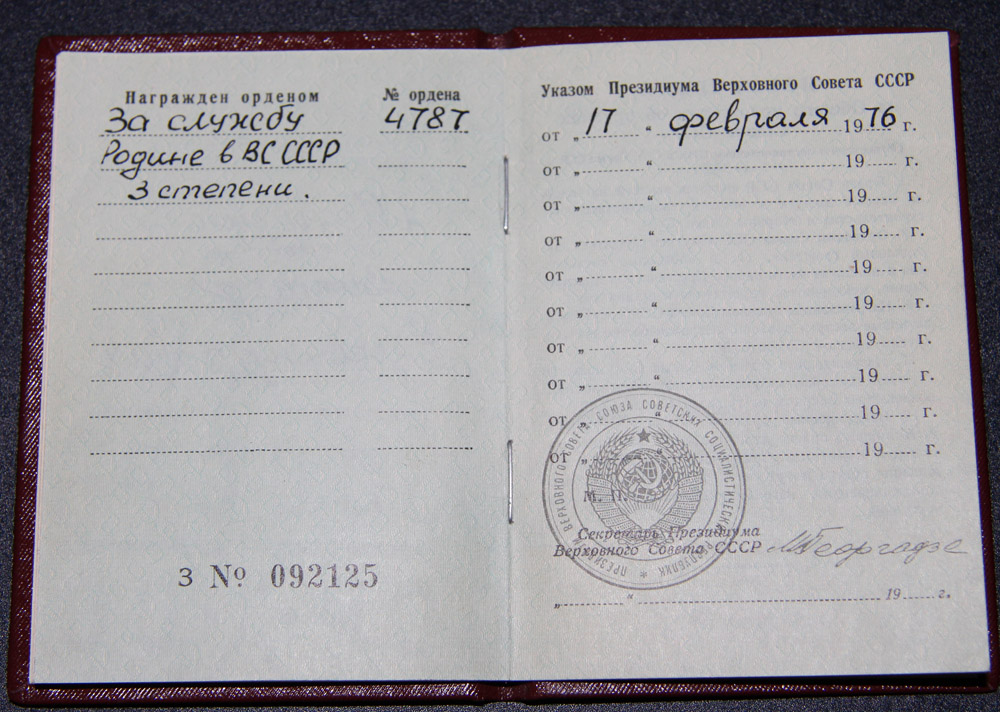 Награжден орденом № ордена
За службу 4787
Родине в ВС СССР
3 степени.
З № 092125
Указом Президиума Верховного Совета СССР
от „ 17 “ февраля 1976 г.
от „ “ 19 г.
от „ “ 19 г.
от „ “ 19 г.
от „ “ 19 г.
от „ “ 19 г.
от „ “ 19 г.
от „ “ 19 г.
от „ “ 19 г.
от „ “ 19 г.
ПРЕЗИДИУМ ВЕРХОВНОГО СОВЕТА СОЮЗА СОВЕТСКИХ СОЦИАЛИСТИЧЕСКИХ РЕСПУБЛИК *
М. П.
Секретарь Президиума
Верховного Совета СССР МГеоргадзе
„ “ 19 г.